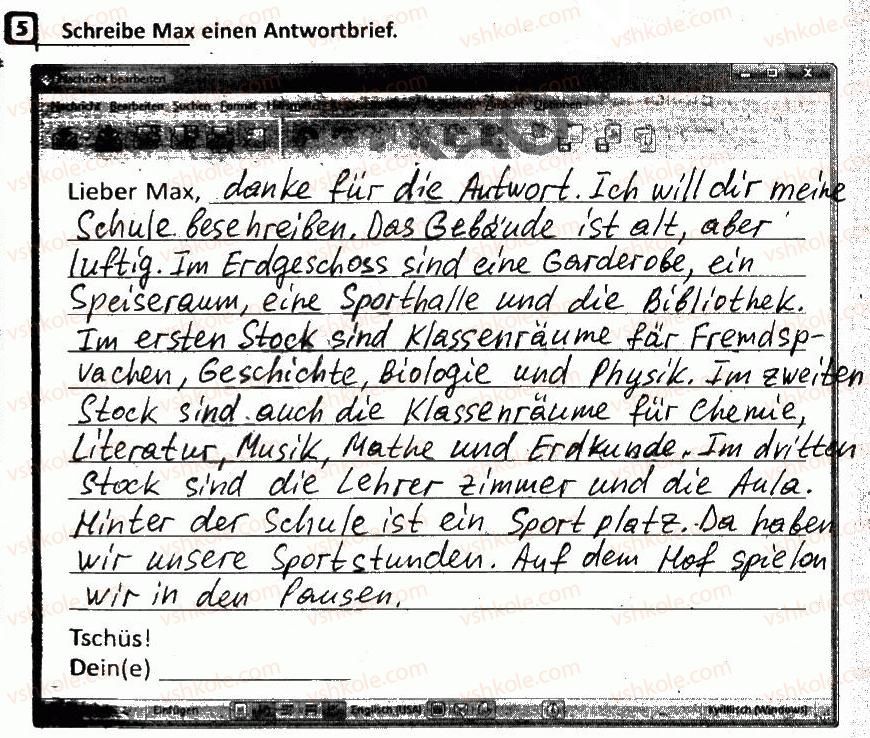 5 Schreibe Max einen Antwortbrief.
Nachricht bearbeiten
Nachricht Bearbeiten Suchen Format
Lieber Max, danke für die Antwort. Ich will dir meine
Schule besehreiben. Das Gebäude ist alt, aber
luftig. Im Erdgeschoss sind eine Garderobe, ein
Speiseraum, eine Sporthalle und die Bibliothek.
Im ersten Stock sind Klassenräume fär Fremdsp-
vachen, Geschichte, Biologie und Physik. Im zweiten
Stock sind auch die Klassenräume für Chemie,
Literatur, Musik, Mathe und Erdkunde. Im dritten
Stock sind die Lehrer zimmer und die Aula.
Hinter der Schule ist ein Sport platz. Da haben
wir unsere Sportstunden. Auf dem Hof spielon
wir in den Pausen.
Tschüs!
Dein(e)
Einfügen Englisch (USA) Kyrillisch (Windows)
vshkole.com